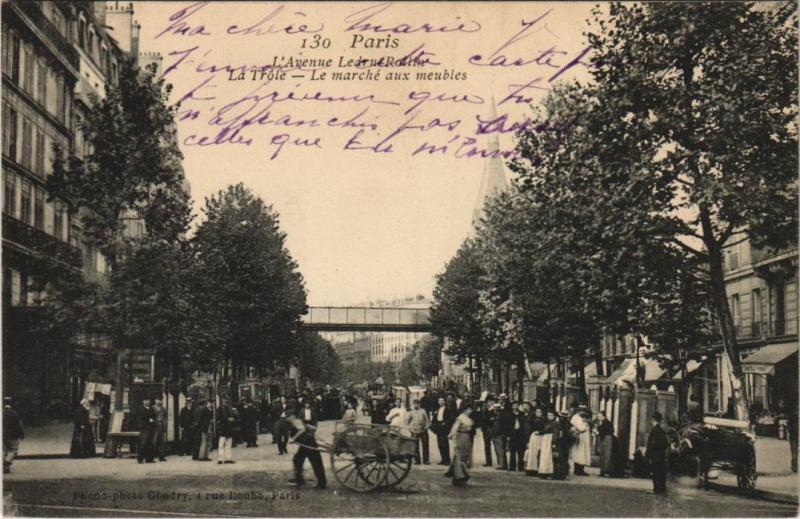 Ma chère Marie
130 Paris
L'Avenue Ledru-Rollin
La Trôle — Le marché aux meubles
carte
prévenir que tu
n'affranchis pas
celles que tu m'envoie
Phono-photo Gondry, 4 rue Houba, Paris